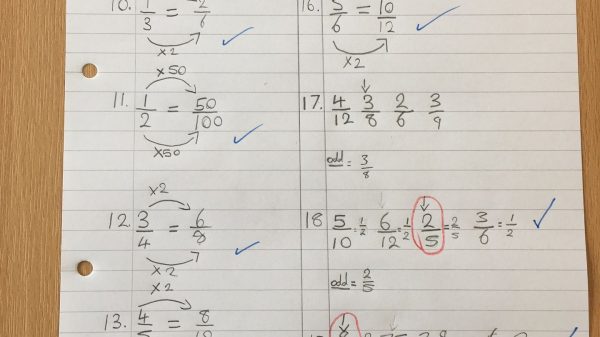 10. 1/3 = 2/6
x2
x50
11. 1/2 = 50/100
x50
x2
12. 3/4 = 6/8
x2
x2
13. 4/5 = 8/10
16. 5/6 = 10/12
x2
17. 4/12 3/8 2/6 3/9
odd = 3/8
18 5/10 = 1/2 6/12 = 1/2 2/5 = 2/5 3/6 = 1/2
odd = 2/5